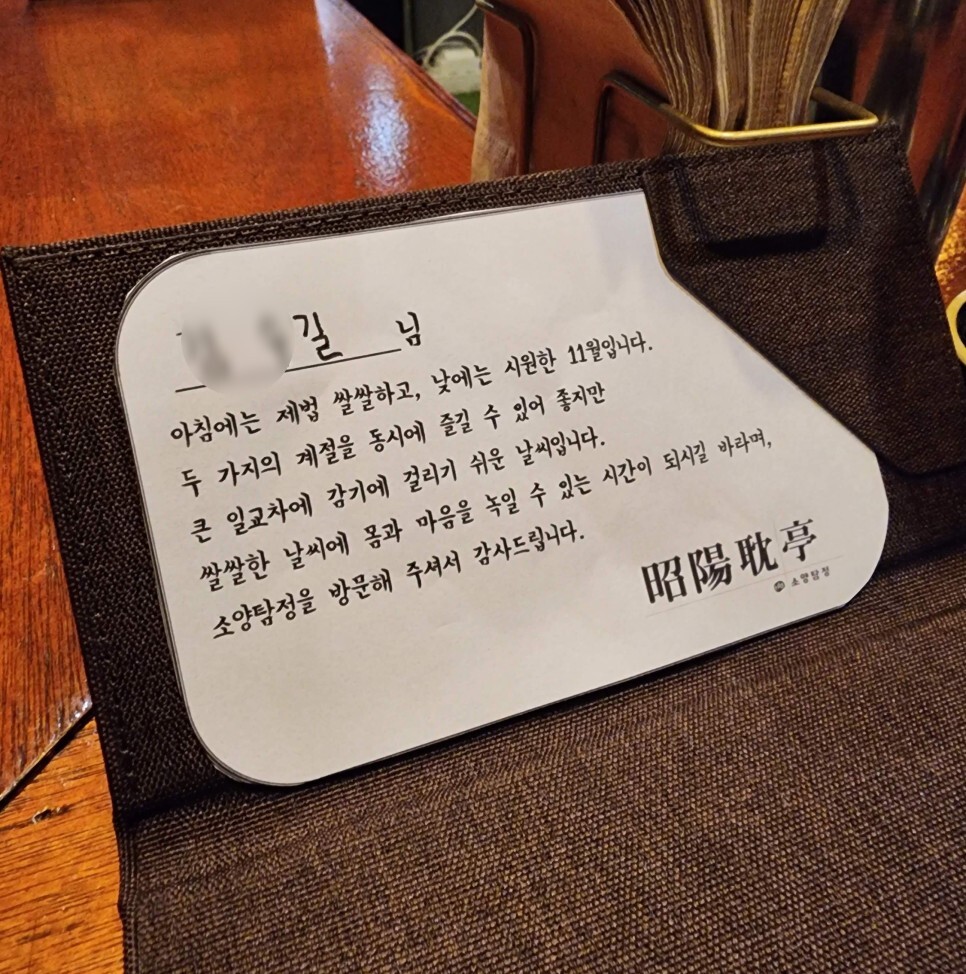 길 님
아침에는 제법 쌀쌀하고, 낮에는 시원한 11월입니다.
두 가지의 계절을 동시에 즐길 수 있어 좋지만
큰 일교차에 감기에 걸리기 쉬운 날씨입니다.
쌀쌀한 날씨에 몸과 마음을 녹일 수 있는 시간이 되시길 바라며,
소양탐정을 방문해 주셔서 감사드립니다.
昭陽耽亭
소양탐정